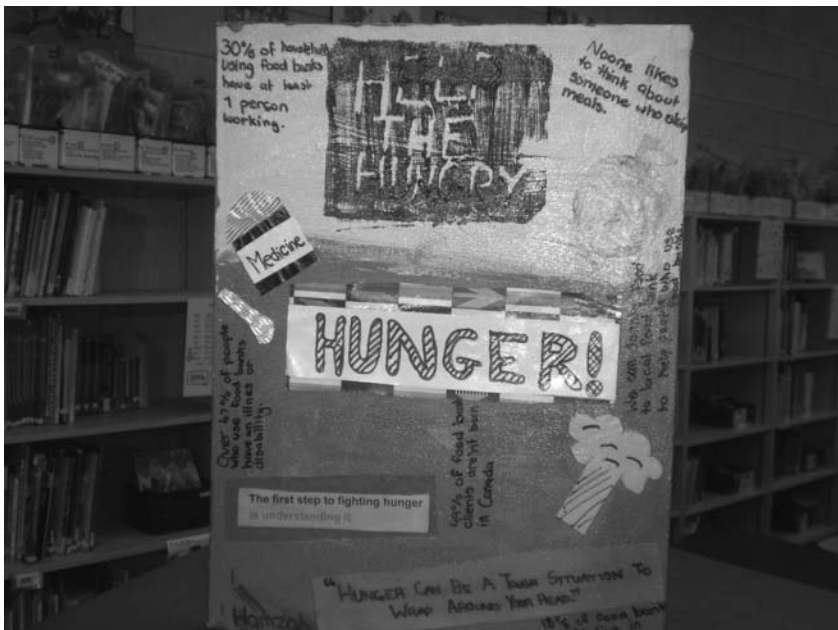 30% of household
using food banks
have at least
1 person
working.
HELP
THE
HUNGRY
Noone likes
to think about
someone who skip
meals.
Medicine
HUNGER!
Over 47% of people
who use food banks
have an illnes or
disability.
49% of food bank
clients are'nt born
in Canada
We can donate food
to local food bank
to help people who use
food banks
The first step to fighting hunger
is understanding it
"HUNGER CAN BE A TOUGH SITUATION TO
WRAP AROUND YOUR HEAD."
Hamzah
18% of food bank